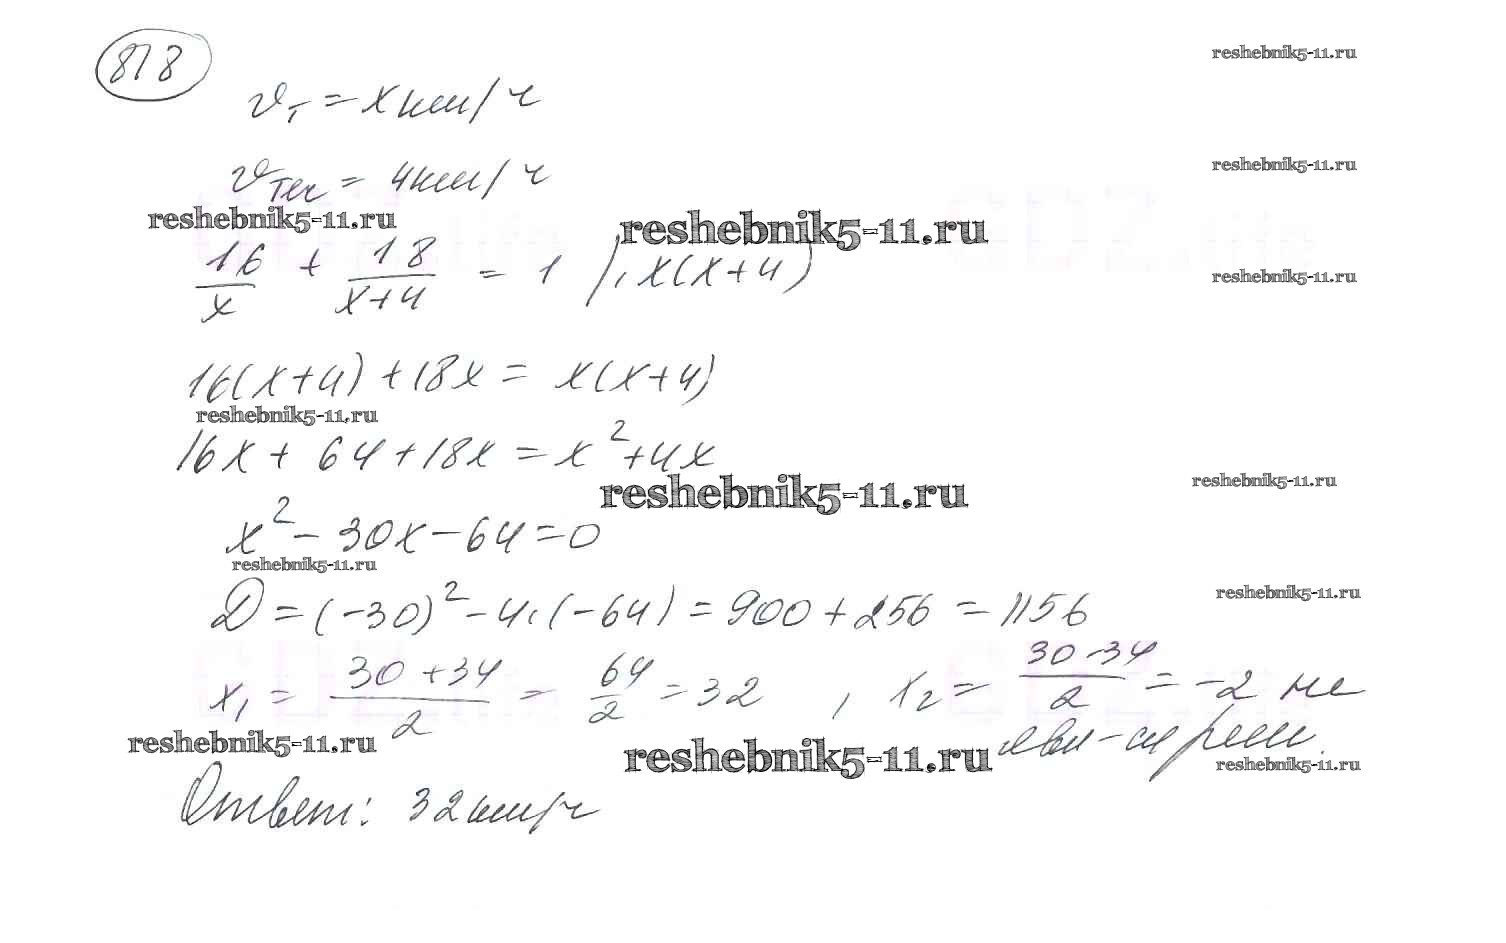 818
reshebnik5-11.ru
vт = x км/ч
vтеч = 4 км/ч
reshebnik5-11.ru
reshebnik5-11.ru
reshebnik5-11.ru
16/x + 18/(x+4) = 1 |· x(x+4)
reshebnik5-11.ru
16(x+4) + 18x = x(x+4)
reshebnik5-11.ru
16x + 64 + 18x = x² + 4x
reshebnik5-11.ru
reshebnik5-11.ru
x² - 30x - 64 = 0
reshebnik5-11.ru
D = (-30)² - 4·(-64) = 900 + 256 = 1156
reshebnik5-11.ru
x₁ = (30+34)/2 = 64/2 = 32 , x₂ = (30-34)/2 = -2 не
явл-ся реш.
reshebnik5-11.ru
reshebnik5-11.ru
reshebnik5-11.ru
Ответ: 32 км/ч